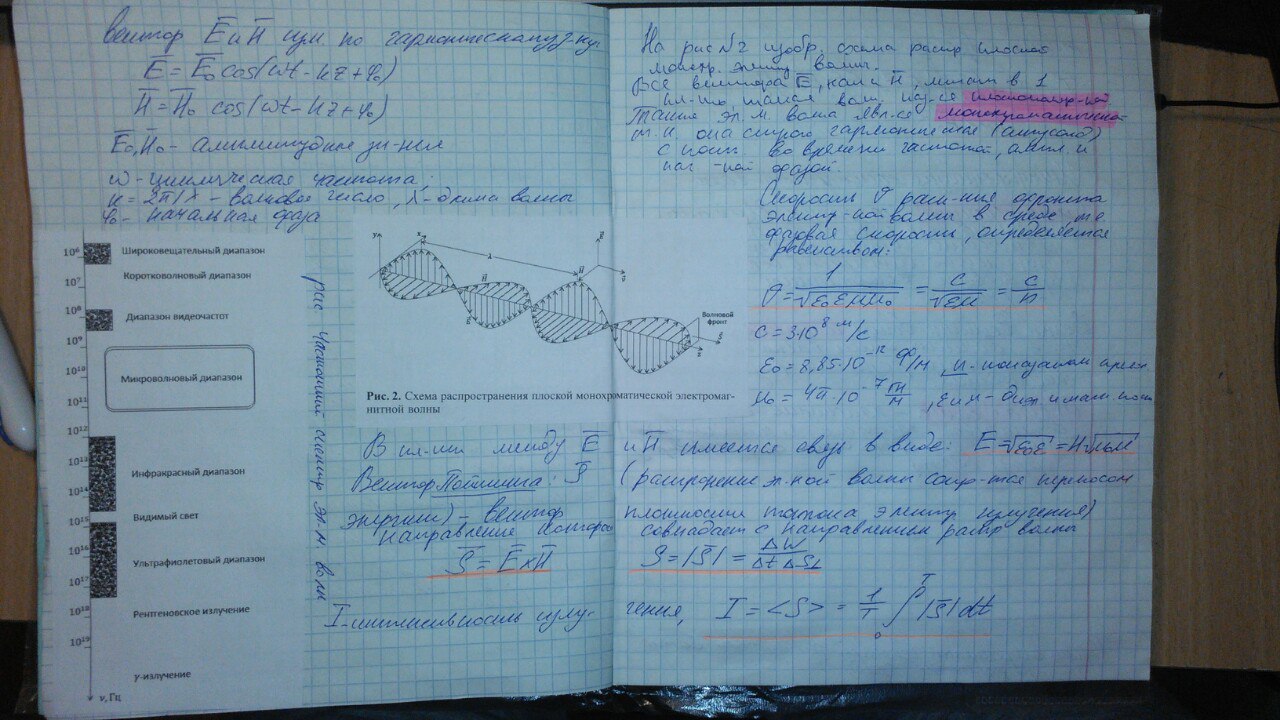 вектор E и H изм. по гармоническому з-ну.
E = E₀ cos(ωt - kz + φ₀)
H = H₀ cos(ωt - kz + φ₀)
E₀, H₀ - амплитудные зн-ния
ω - циклическая частота,
k = 2π/λ - волновое число, λ - длина волны
φ₀ - начальная фаза
10⁶ Широковещательный диапазон
Коротковолновый диапазон
10⁷
10⁸ Диапазон видеочастот
10⁹
10¹⁰ Микроволновый диапазон
10¹¹
10¹²
10¹³ Инфракрасный диапазон
10¹⁴
10¹⁵ Видимый свет
10¹⁶
Ультрафиолетовый диапазон
10¹⁷
10¹⁸ Рентгеновское излучение
10¹⁹
γ-излучение
ν, Гц
рис Частотный спектр эл. м. волн
y x λ
H
Волновой
фронт
Рис. 2. Схема распространения плоской монохроматической электромаг-
нитной волны
На рис №2 изобр. схема распр плоской
волны.
Все вектора E, как и H, лежат в 1
пл-ти, такая волн. наз-ся
Такая эл. м. волна явл-ся монохроматической
т.к. она строго гармоническая (синусоид)
с пост. во времени частотой, ампл. и
нач-ной фазой
Скорость υ распр-ния фронта
волны в среде, те
фазовая скорость, определяется
равенством:
υ = 1/√ε₀εμμ₀ = c/√εμ = c/n
c = 3·10⁸ м/с
ε₀ = 8,85·10⁻¹² Ф/м, n - показатель прел.
μ₀ = 4π·10⁻⁷ Гн/м, ε и μ -
В пл-ти между E и H имеется связь в виде: E√ε₀ε = H√μ₀μ
Вектор Пойтинга: S (распр-ние волны сопр-тся переносом
энергии) - вектор плотности потока электр излучения)
направление которого совпадает с направлением распр волны
S = E × H S = |S| = ΔW/Δt ΔS⊥
I - интенсивность излучения, I = <S> = 1/T ∫₀ᵀ |S| dt